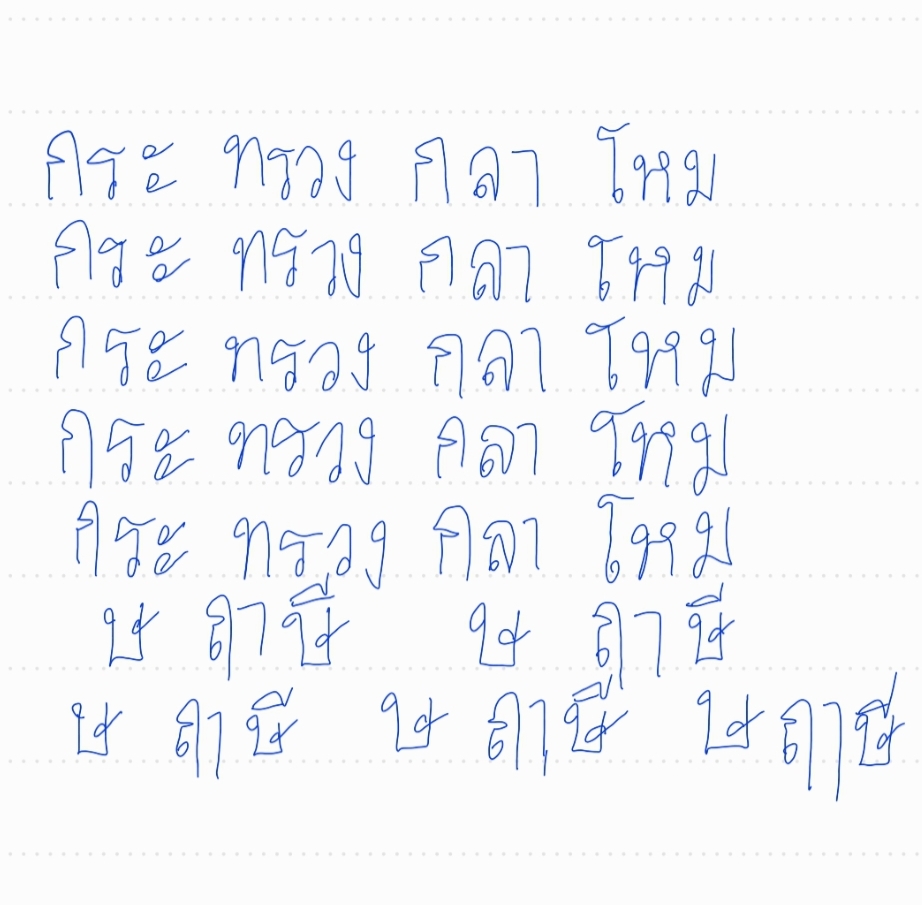 กระ ทรวง กลา โหม
กระ ทรวง กลา โหม
กระ ทรวง กลา โหม
กระ ทรวง กลา โหม
กระ ทรวง กลา โหม
ษ ฤา ษี ษ ฤา ษี
ษ ฤา ษี ษ ฤา ษี ษ ฤา ษี